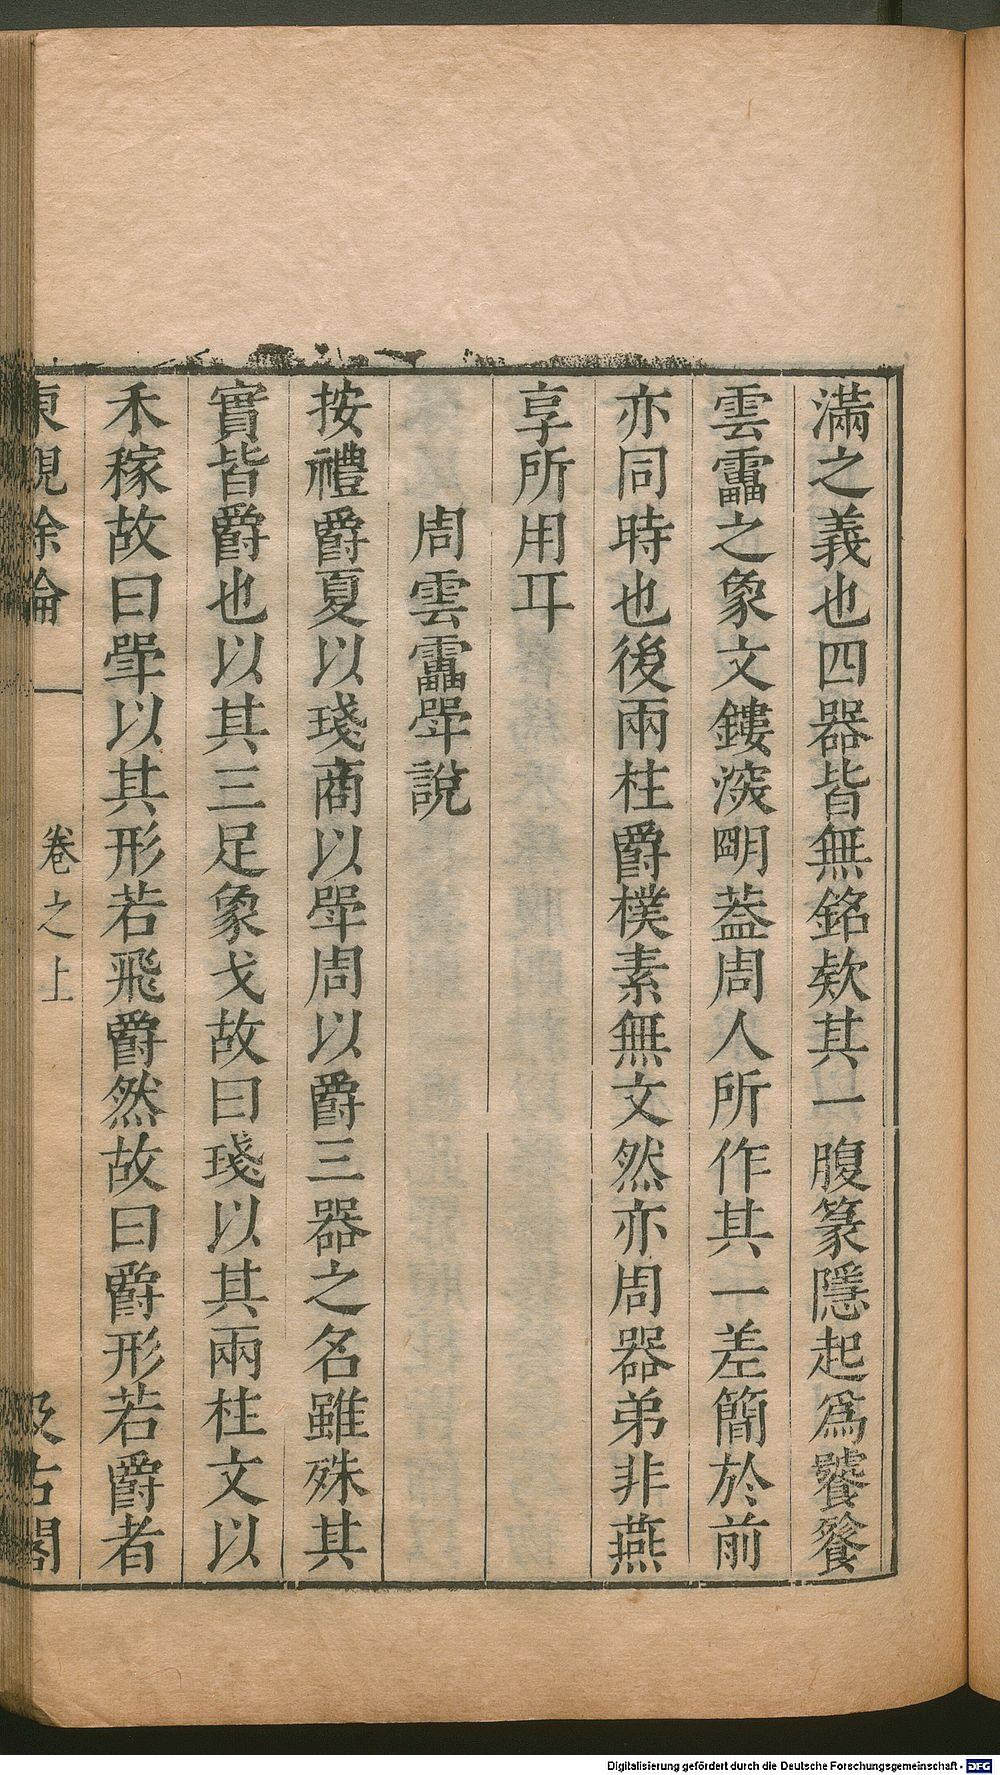 滿之義也四器皆無銘欵其一腹篆隱起爲饕餮
雲靁之象文鏤深明蓋周人所作其一差簡於前
亦同時也後兩柱爵樸素無文然亦周器弟非燕
享所用耳
周雲靁斝說
按禮爵夏以琖商以斝周以爵三器之名雖殊其
實皆爵也以其三足象戈故曰琖以其兩柱文以
禾稼故曰斝以其形若飛爵然故曰爵形若爵者
東觀餘論
卷之上
汲古閣
Digitalisierung gefördert durch die Deutsche Forschungsgemeinschaft - DFG